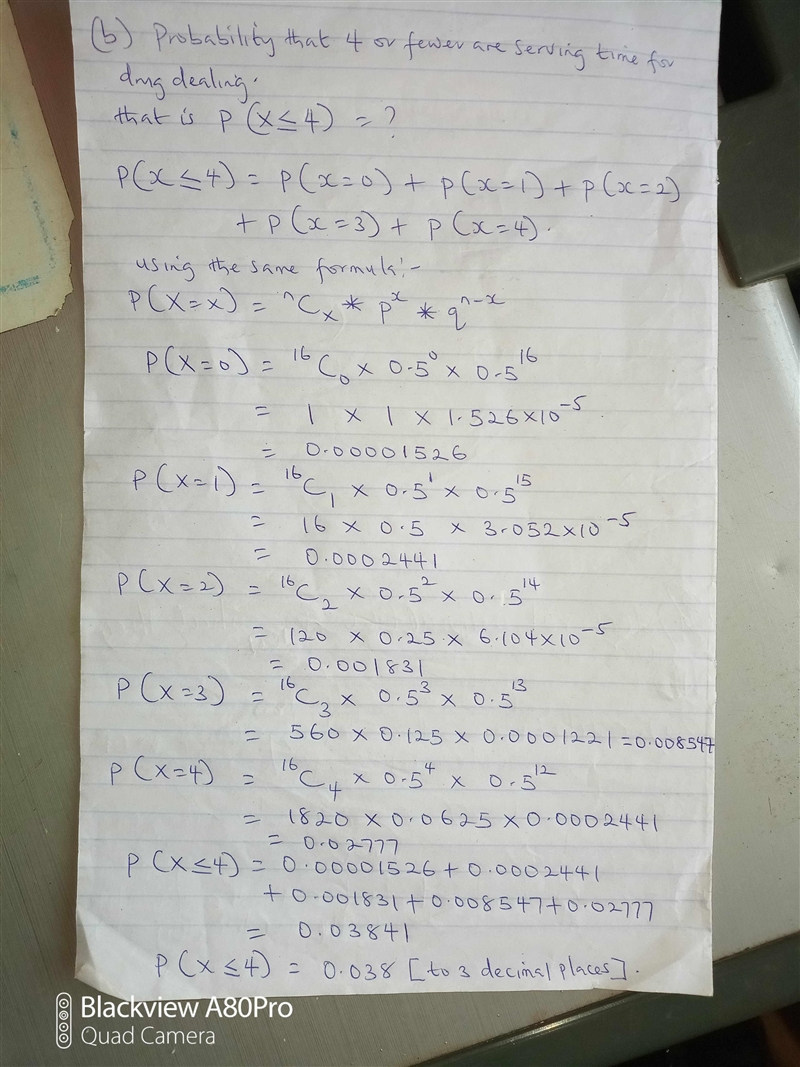 (b) Probability that 4 or fewer are serving time for
drug dealing.
that is P(X≤4) = ?
P(x≤4) = P(x=0) + P(x=1) + P(x=2)
+ P(x=3) + P(x=4).
using the same formula:-
P(X=x) = ⁿCₓ * pˣ * qⁿ⁻ˣ
P(X=0) = ¹⁶C₀ × 0.5⁰ × 0.5¹⁶
= 1 × 1 × 1.526×10⁻⁵
= 0.00001526
P(X=1) = ¹⁶C₁ × 0.5¹ × 0.5¹⁵
= 16 × 0.5 × 3.052×10⁻⁵
= 0.0002441
P(X=2) = ¹⁶C₂ × 0.5² × 0.5¹⁴
= 120 × 0.25 × 6.104×10⁻⁵
= 0.001831
P(X=3) = ¹⁶C₃ × 0.5³ × 0.5¹³
= 560 × 0.125 × 0.0001221 = 0.008547
P(X=4) = ¹⁶C₄ × 0.5⁴ × 0.5¹²
= 1820 × 0.0625 × 0.0002441
= 0.02777
P(X≤4) = 0.00001526 + 0.0002441
+ 0.001831 + 0.008547 + 0.02777
= 0.03841
P(X≤4) = 0.038 [to 3 decimal places].
Blackview A80Pro
Quad Camera